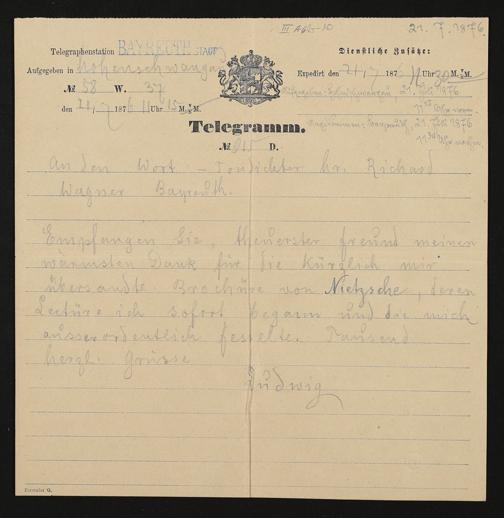 III A6b-10
21. 7. 1876.
Telegraphenstation BAYREUTH STADT
Dienstliche Zusätze:
Aufgegeben in Hohenschwangau
Expedirt den 21/7 1876 11 Uhr 30 M.
№ 58 W. 37
den 21/7 1876 11 Uhr 15 M.
21. Juli 1876
Telegramm.
№ D.
An den Wort - Tondichter hr. Richard
Wagner Bayreuth.
Empfangen Sie, theuerster freund meinen
wärmsten Dank für die kürzlich mir
übersandte Brochüre von Nietzsche, deren
Lectüre ich sofort begann und die mich
ausserordentlich fesselte. Tausend
herzl. Grüsse
Ludwig
Formular G.